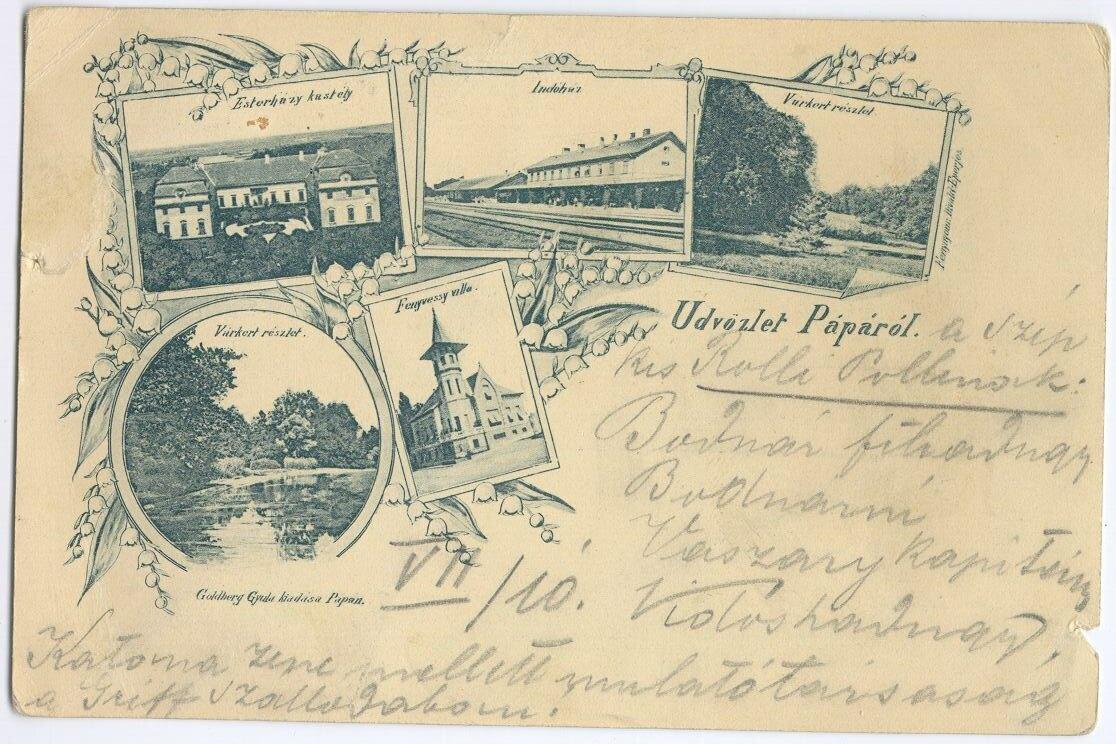 Esterházy kastély
Indóház
Várkert részlet
Fényvessy villa.
Várkert részlet.
Üdvözlet Pápáról.
a szép
kis Rolli Pollinak:
Bodnár főhadnagy
Bodnárné
Vaszary kapitány
Vidos hadnagy,
Goldberg Gyula kiadása Pápán.
VII/10.
Katona zene mellett mulató társaság
a Griff Szállodában.